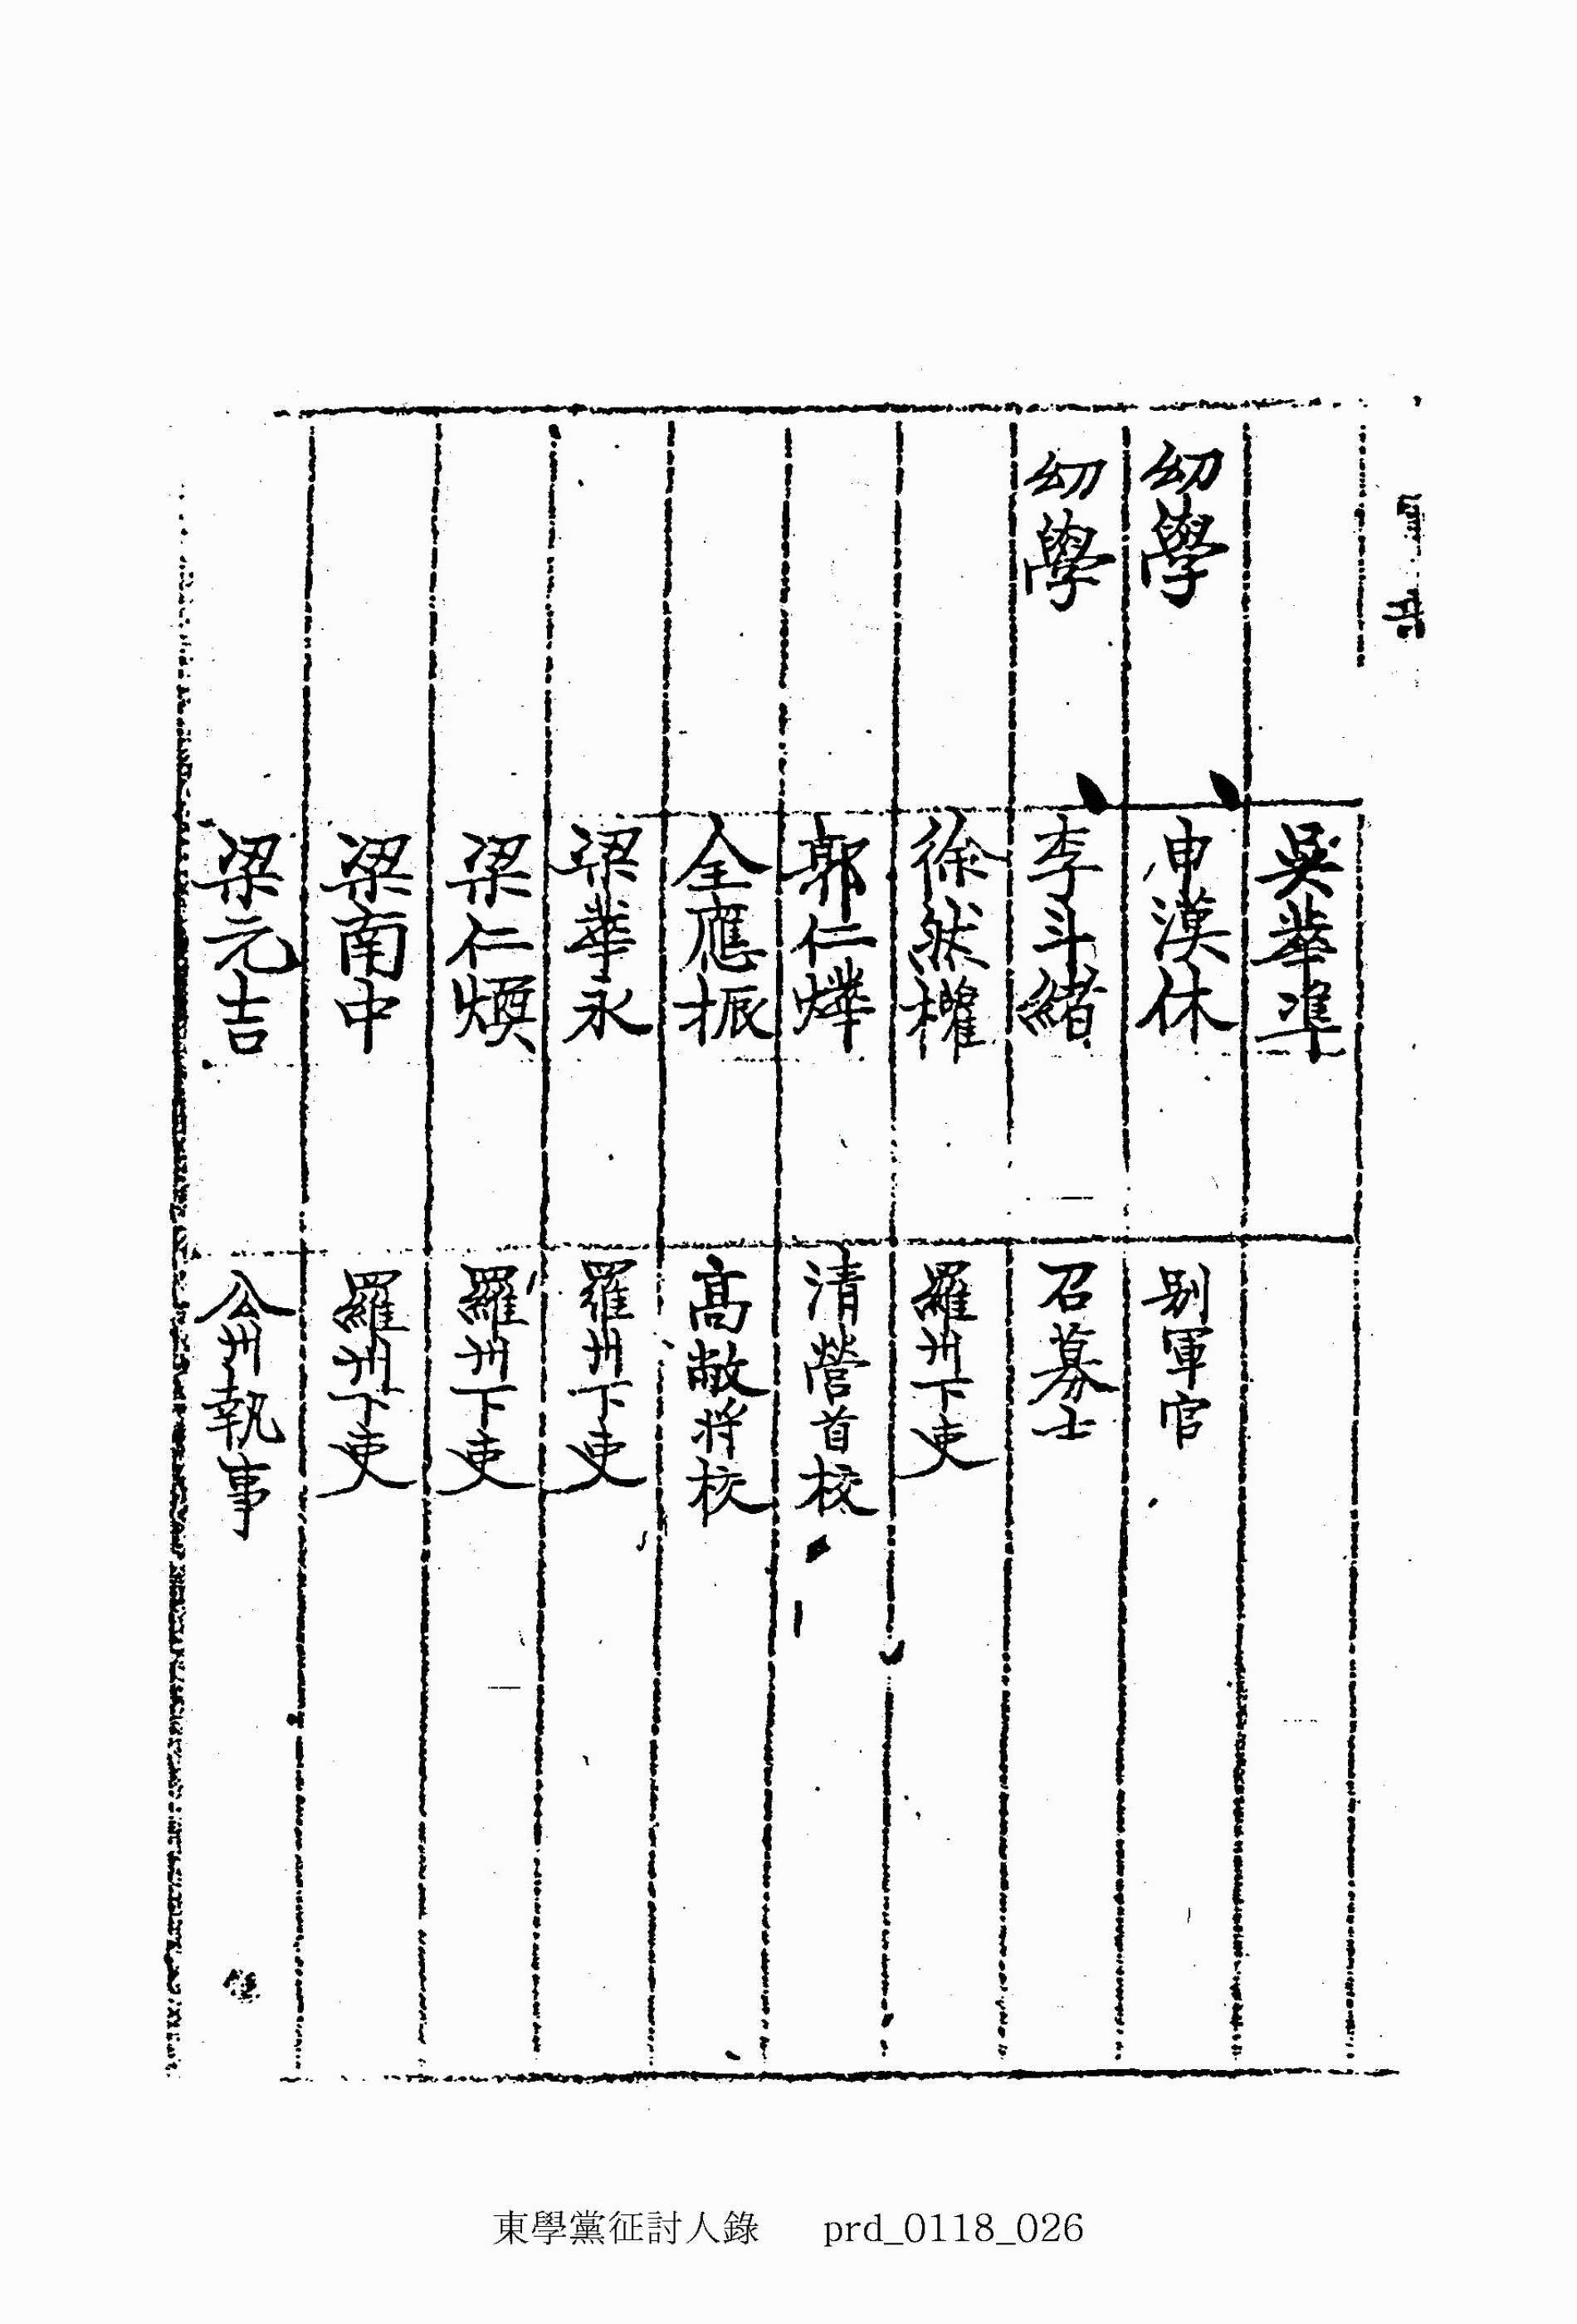 吳華準
幼學 申漢休 別軍官
幼學 李斗緖 召募士
徐然權 羅州下吏
郭仁燁 淸營首校
全應振 高敞將校
梁華永 羅州下吏
梁仁煥 羅州下吏
梁南中 羅州下吏
梁元吉 公州執事
東學黨征討人錄 prd_0118_026